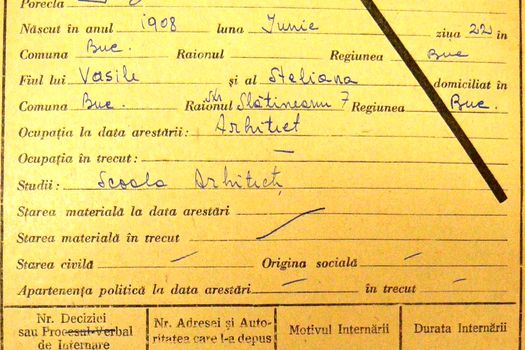 Porecla
Născut în anul 1908 luna Iunie ziua 22 în
Comuna Buc. Raionul Regiunea Buc
Fiul lui Vasile și al Steliana domiciliat în
Comuna Buc. Raionul Str Slătineanu 7 Regiunea Buc.
Ocupația la data arestării: Arhitect
Ocupația în trecut: —
Studii: Scoala Arhitecț
Starea materială la data arestări
Starea materială în trecut
Starea civilă — Origina socială —
Apartenența politică la data arestări — în trecut —
Nr. Deciziei sau Procesul-Verbal de Internare
Nr. Adresei și Autoritatea care l-a depus
Motivul Internării
Durata Internării